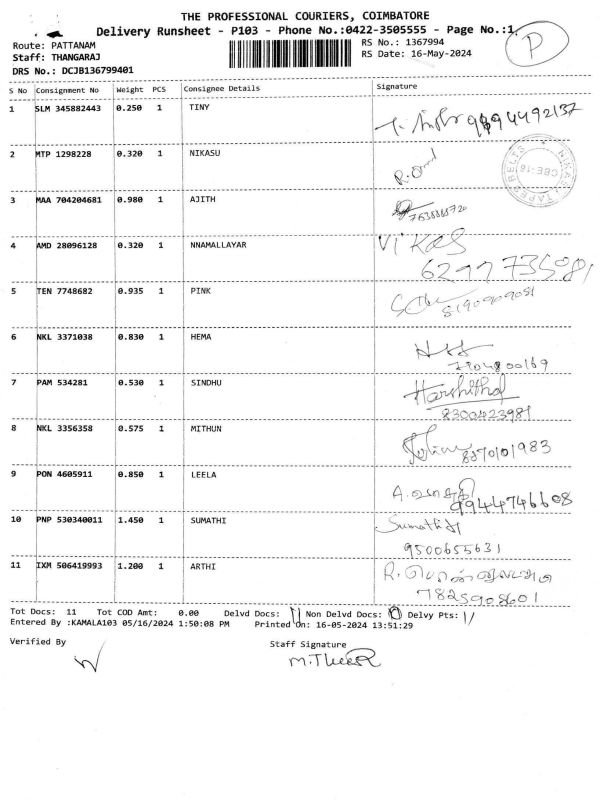 THE PROFESSIONAL COURIERS, COIMBATORE
Delivery Runsheet - P103 - Phone No.:0422-3505555 - Page No.:1
P
Route: PATTANAM
RS No.: 1367994
Staff: THANGARAJ
RS Date: 16-May-2024
DRS No.: DCJB136799401
S No Consignment No Weight PCS Consignee Details Signature
1 SLM 345882443 0.250 1 TINY
2 MTP 1298228 0.320 1 NIKASU
NIKASU TAPES BELTS CBE-16
3 MAA 704204681 0.980 1 AJITH
4 AMD 28096128 0.320 1 NNAMALLAYAR Vikas
5 TEN 7748682 0.935 1 PINK
8190909081
6 NKL 3371038 0.830 1 HEMA
7 PAM 534281 0.530 1 SINDHU
8300423981
8 NKL 3356358 0.575 1 MITHUN
8870101983
9 PON 4605911 0.850 1 LEELA
9944746608
10 PNP 530340011 1.450 1 SUMATHI Sumathi
9500655631
11 IXM 506419993 1.200 1 ARTHI
7825908601
Tot Docs: 11 Tot COD Amt: 0.00 Delvd Docs: 11 Non Delvd Docs: 0 Delvy Pts: 11
Entered By :KAMALA103 05/16/2024 1:50:08 PM Printed On: 16-05-2024 13:51:29
Verified By
Staff Signature